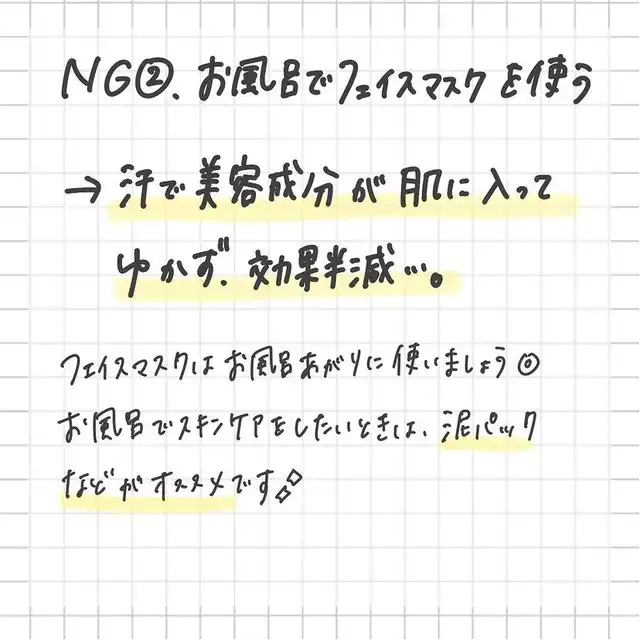 NG②.お風呂でフェイスマスクを使う
→汗で美容成分が肌に入って
ゆかず、効果半減…。
フェイスマスクはお風呂あがりに使いましょう◎
お風呂でスキンケアをしたいときは、泥パック
などがオススメです